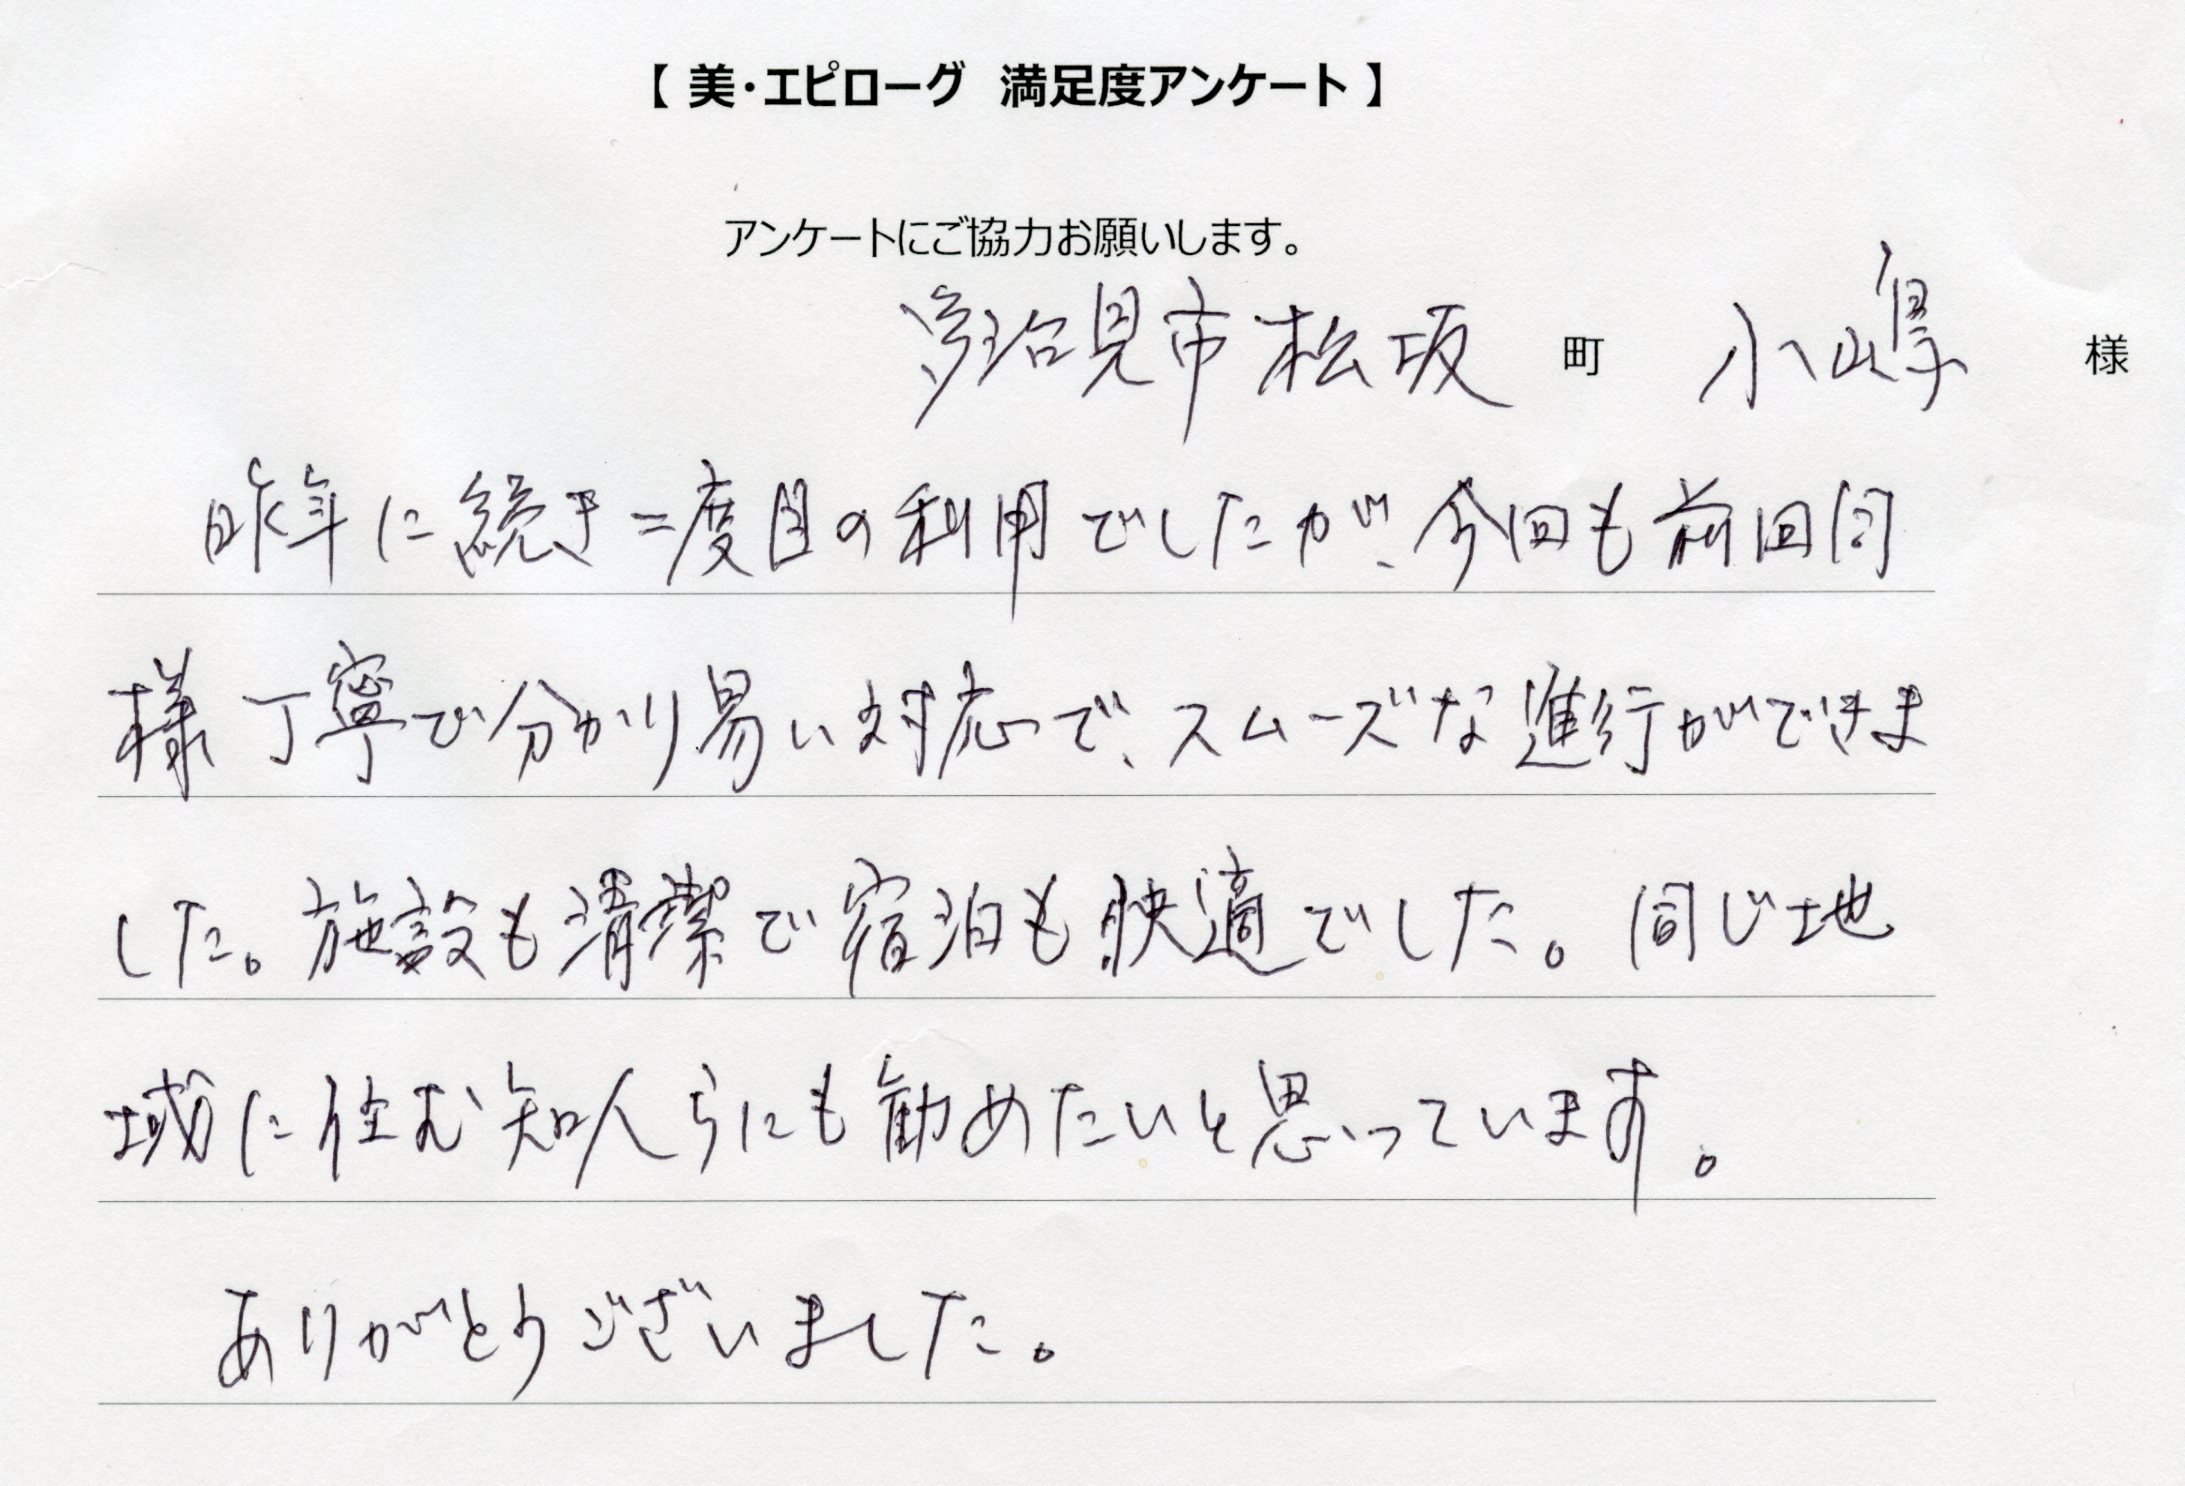 【 美・エピローグ 満足度アンケート 】
アンケートにご協力お願いします。
多治見市松坂 町 小嶋 様
昨年に続き二度目の利用でしたが、今回も前回同
様丁寧で分かり易い対応で、スムーズな進行ができま
した。施設も清潔で宿泊も快適でした。同じ地
域に住む知人らにも勧めたいと思っています。
ありがとうございました。